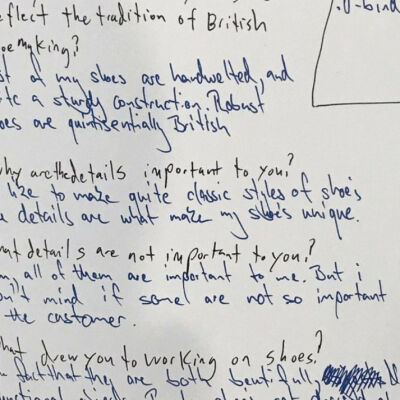 eflect the tradition of British
.U-bind
oemaking?
st of my shoes are handwelted, and
te a sturdy construction. Robust
oes are quintisentially British
why are the details important to you?
like to make quite classic styles of shoes
e details are what make my shoe's unique.
hat details are not important to you?
m, all of them are important to me. But i
on't mind if some are not so important
the customer.
hat drew you to working on shoes?
fact that they are both beutifull,